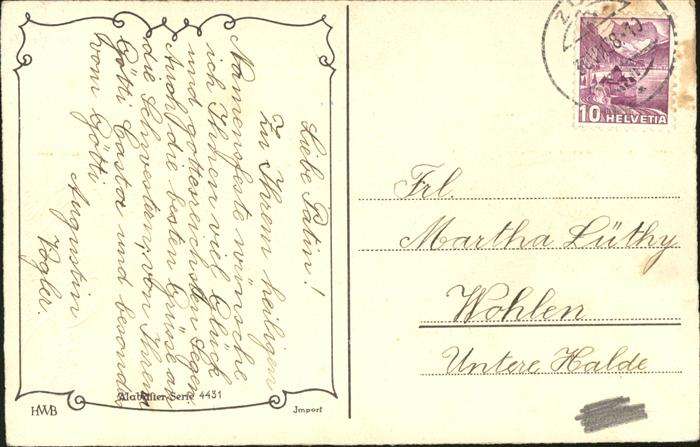 Liebe Patin!
Zu Ihrem heiligen
Namensfeste wünsche
ich Ihnen viel Glück
und gottesreichsten Segen.
Auch die besten Grüsse an
die Schwestern, von Ihrem
Götti Castor und besonders
vom Götti
Augustin
Vogler.
Alabaster Serie 4431
HWB
Import
10 HELVETIA
Frl.
Martha Lüthy
Wohlen
Untere Halde